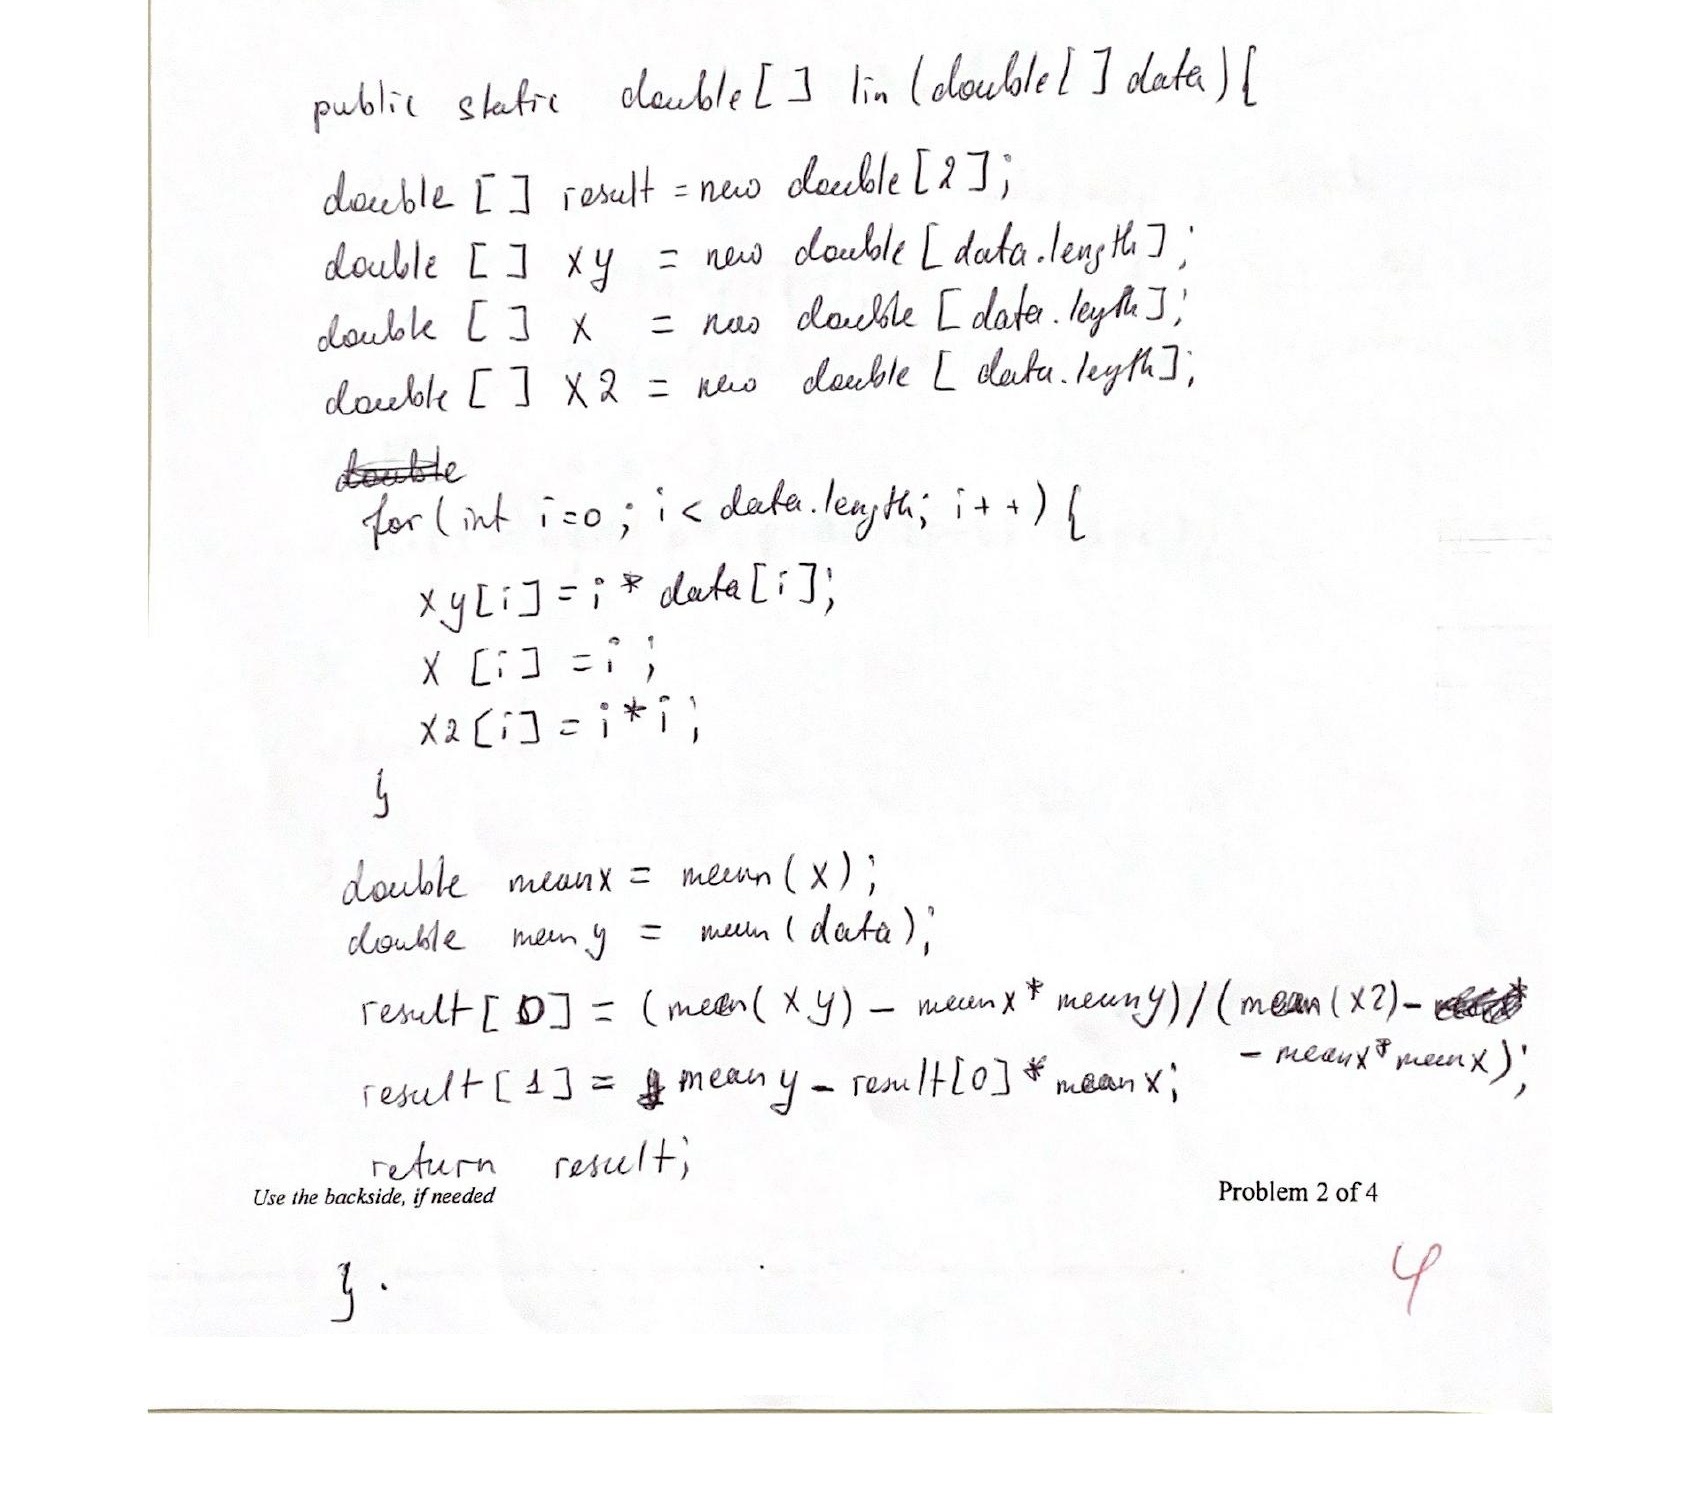 public static double[] lin (double[] data) {
double [] result = new double [2];
double [] xy = new double [data.length];
double [] x = new double [data.length];
double [] x2 = new double [data.length];
double
for (int i=0; i < data.length; i++) {
xy[i] = i * data[i];
x [i] = i;
x2[i] = i*i;
}
double meanx = mean (x);
double meany = mean (data);
result [0] = (mean(xy) - meanx * meany) / (mean (x2) -
- meanx * meanx);
result [1] = meany - result[0] * meanx;
return result;
Use the backside, if needed
Problem 2 of 4
} .
4